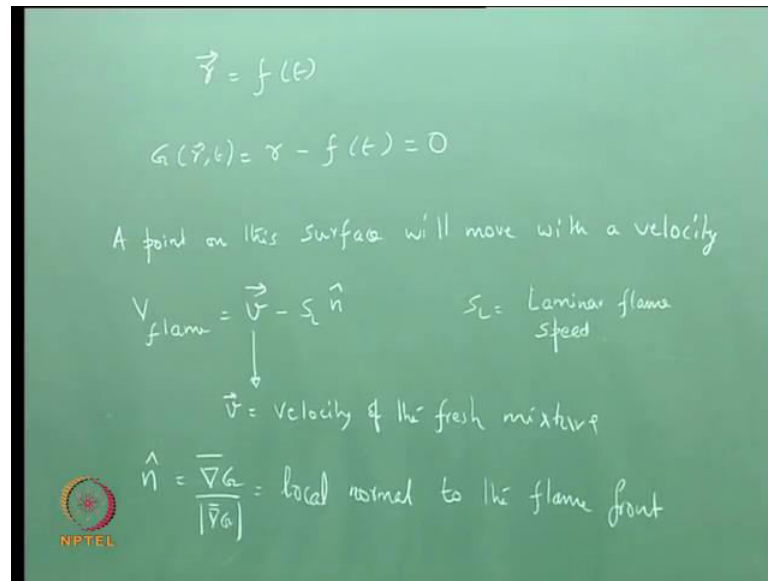 r⃗ = f(t)
G(r⃗,t) = r - f(t) = 0
A point on this surface will move with a velocity
V_flame = v⃗ - S_L n̂    S_L = Laminar flame speed
v⃗ = velocity of the fresh mixture
n̂ = ∇̅G / |∇̅G| = local normal to the flame front
NPTEL